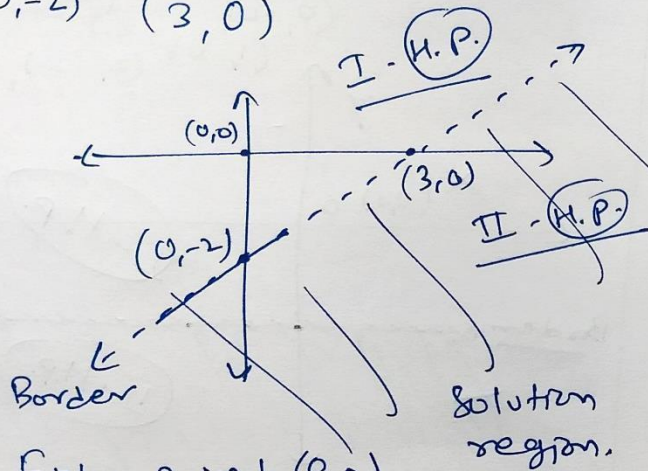 ,-2) (3,0)
I - H.P.
(0,0)
(3,0)
II - H.P.
(0,-2)
Border
Solution
region.